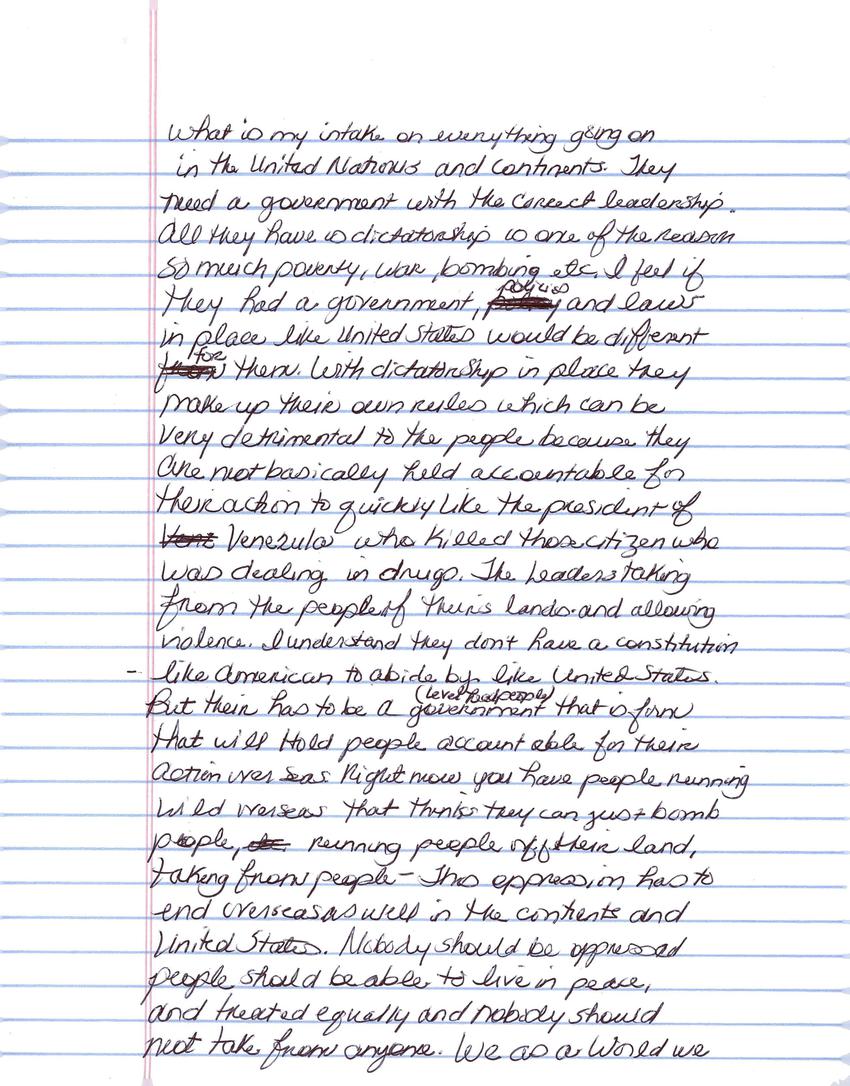 What is my intake on everything going on
in the United Nations and continents. They
need a government with the correct leadership.
All they have is dictatorship is one of the reason
so much poverty, war, bombing etc. I feel if
they had a government, policies and laws
in place like United States would be different
for them. With dictatorship in place they
make up their own rules which can be
very detrimental to the people because they
are not basically held accountable for
their action to quickly like the president of
Venezula who killed those citizen who
was dealing in drugs. The leaders taking
from the people of theirs lands and allowing
violence. I understand they don't have a constitution
- like American to abide by like United States.
But their has to be a government (level head people) that is firm
that will Hold people account able for their
action over seas. Right now you have people running
wild overseas that thinks they can just bomb
people, running people off their land,
taking from people - This oppression has to
end overseas as well in the contients and
United States. Nobody should be oppressed
people should be able to live in peace,
and treated equally and nobody should
not take from anyone. We as a World we